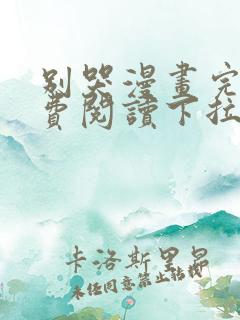 别哭漫畫完
費閱讀下拉
卡洛斯里昂
未经同意禁止转载